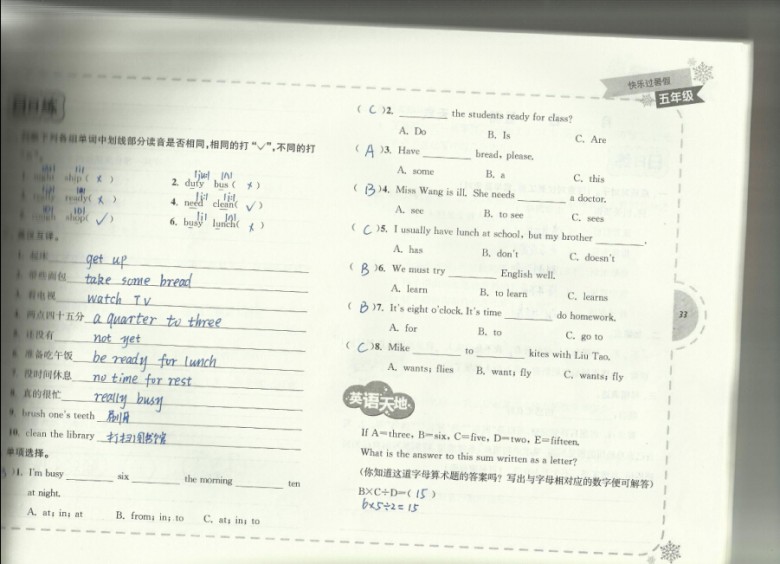 快乐过暑假
五年级
日日练
判断下列各组单词中划线部分读音是否相同,相同的打“√”,不同的打
ship ( x )
2. duty bus ( x )
ready( x )
4. need clean( √ )
shop( √ )
6. busy lunch( x )
英汉互译。
1. 起床 get up
2. 带些面包 take some bread
3. 看电视 watch TV
4. 两点四十五分 a quarter to three
5. 还没有 not yet
6. 准备吃午饭 be ready for lunch
7. 没时间休息 no time for rest
8. 真的很忙 really busy
9. brush one's teeth 刷牙
10. clean the library 打扫图书馆
单项选择。
)1. I'm busy ______ six ______ the morning ______ ten
at night.
A. at; in; at B. from; in; to C. at; in; to
( C )2. ______ the students ready for class?
A. Do B. Is C. Are
( A )3. Have ______ bread, please.
A. some B. a C. this
( B )4. Miss Wang is ill. She needs ______ a doctor.
A. see B. to see C. sees
( C )5. I usually have lunch at school, but my brother ______.
A. has B. don't C. doesn't
( B )6. We must try ______ English well.
A. learn B. to learn C. learns
( B )7. It's eight o'clock. It's time ______ do homework.
A. for B. to C. go to
( C )8. Mike ______ to ______ kites with Liu Tao.
A. wants; flies B. want; fly C. wants; fly
英语天地
If A=three, B=six, C=five, D=two, E=fifteen.
What is the answer to this sum written as a letter?
(你知道这道字母算术题的答案吗? 写出与字母相对应的数字便可解答)
B×C÷D=( 15 )
6×5÷2=15
33